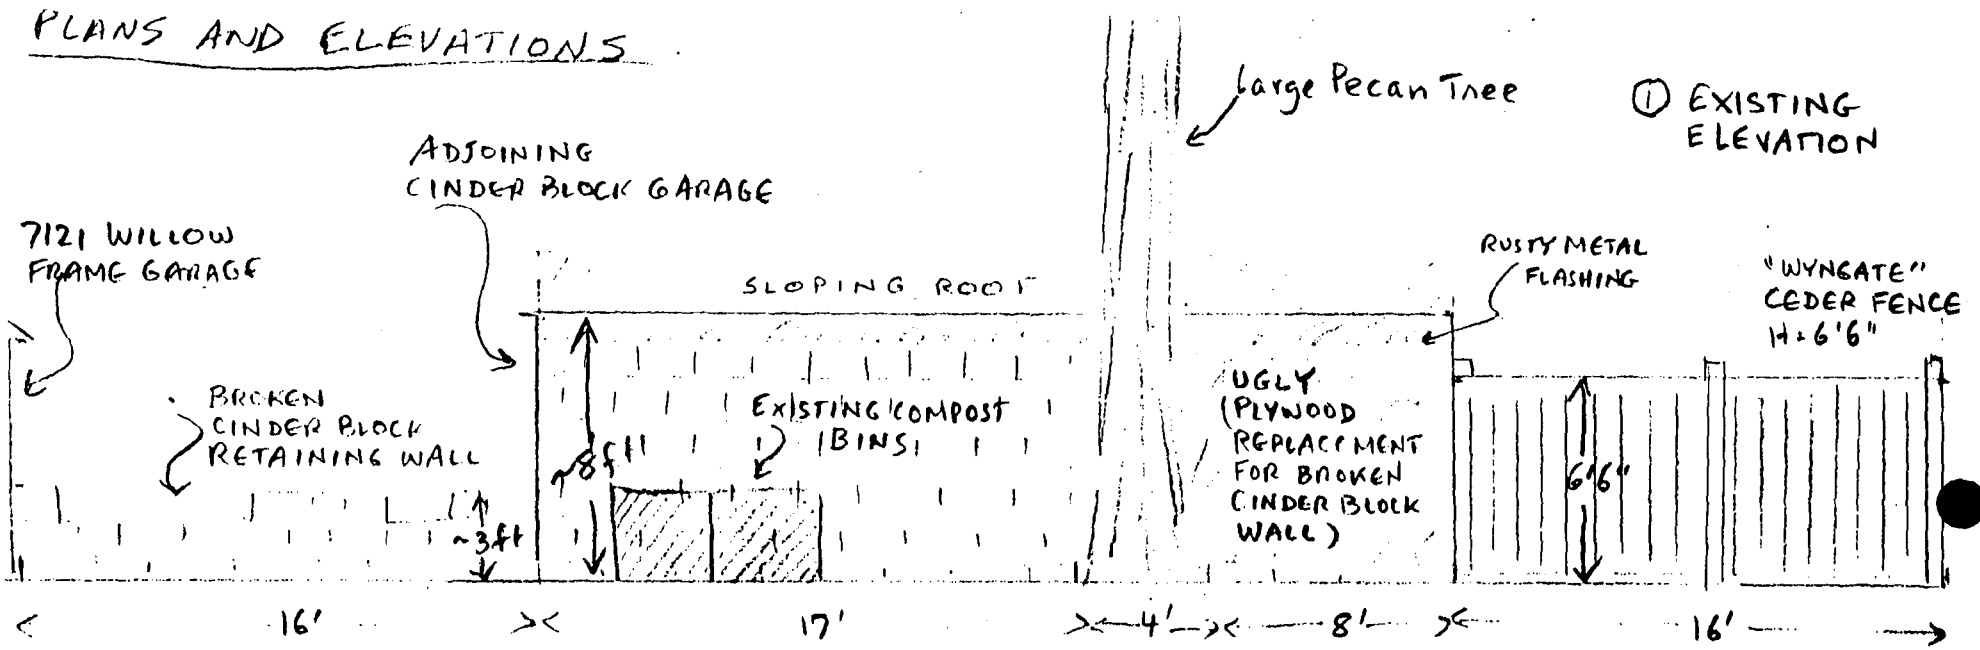 PLANS AND ELEVATIONS
large Pecan Tree
① EXISTING
ELEVATION
ADJOINING
CINDER BLOCK GARAGE
7121 WILLOW
FRAME GARAGE
SLOPING ROOF
RUSTY METAL
FLASHING
"WYNGATE"
CEDER FENCE
H=6'6"
BROKEN
CINDER BLOCK
RETAINING WALL
EXISTING COMPOST
BINS
UGLY
(PLYWOOD
REPLACEMENT
FOR BROKEN
CINDER BLOCK
WALL)
~8ft
6'6"
~3ft
16'
17'
4'
8'
16'